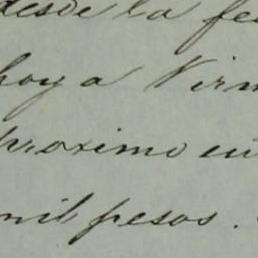 desde la fe
hoy a Vir
proximo en
mil pesos.